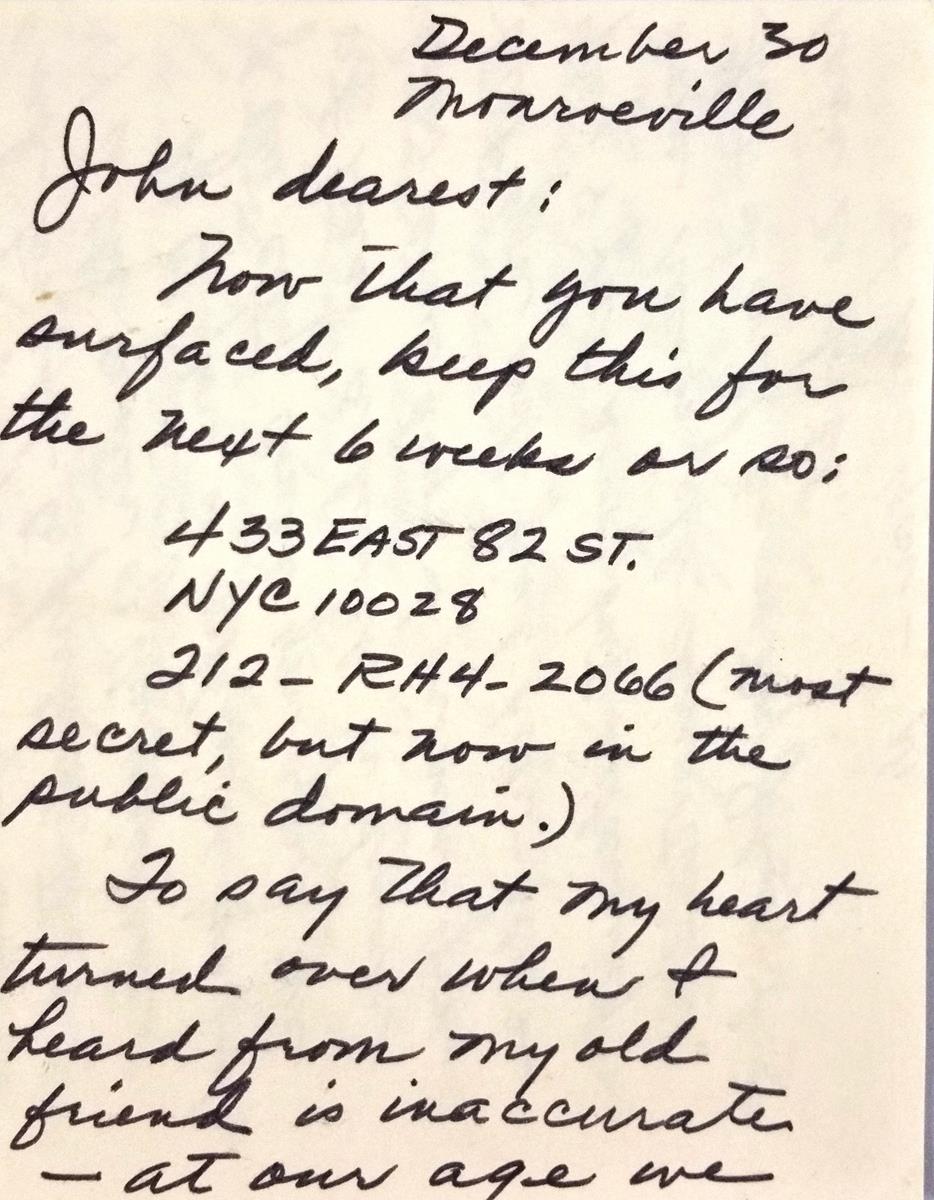 December 30
Monroeville
John dearest:
Now that you have
surfaced, keep this for
the next 6 weeks or so:
433 EAST 82 ST.
NYC 10028
212 - RH4 - 2066 (most
secret, but now in the
public domain.)
To say that my heart
turned over when I
heard from my old
friend is inaccurate
— at our age we